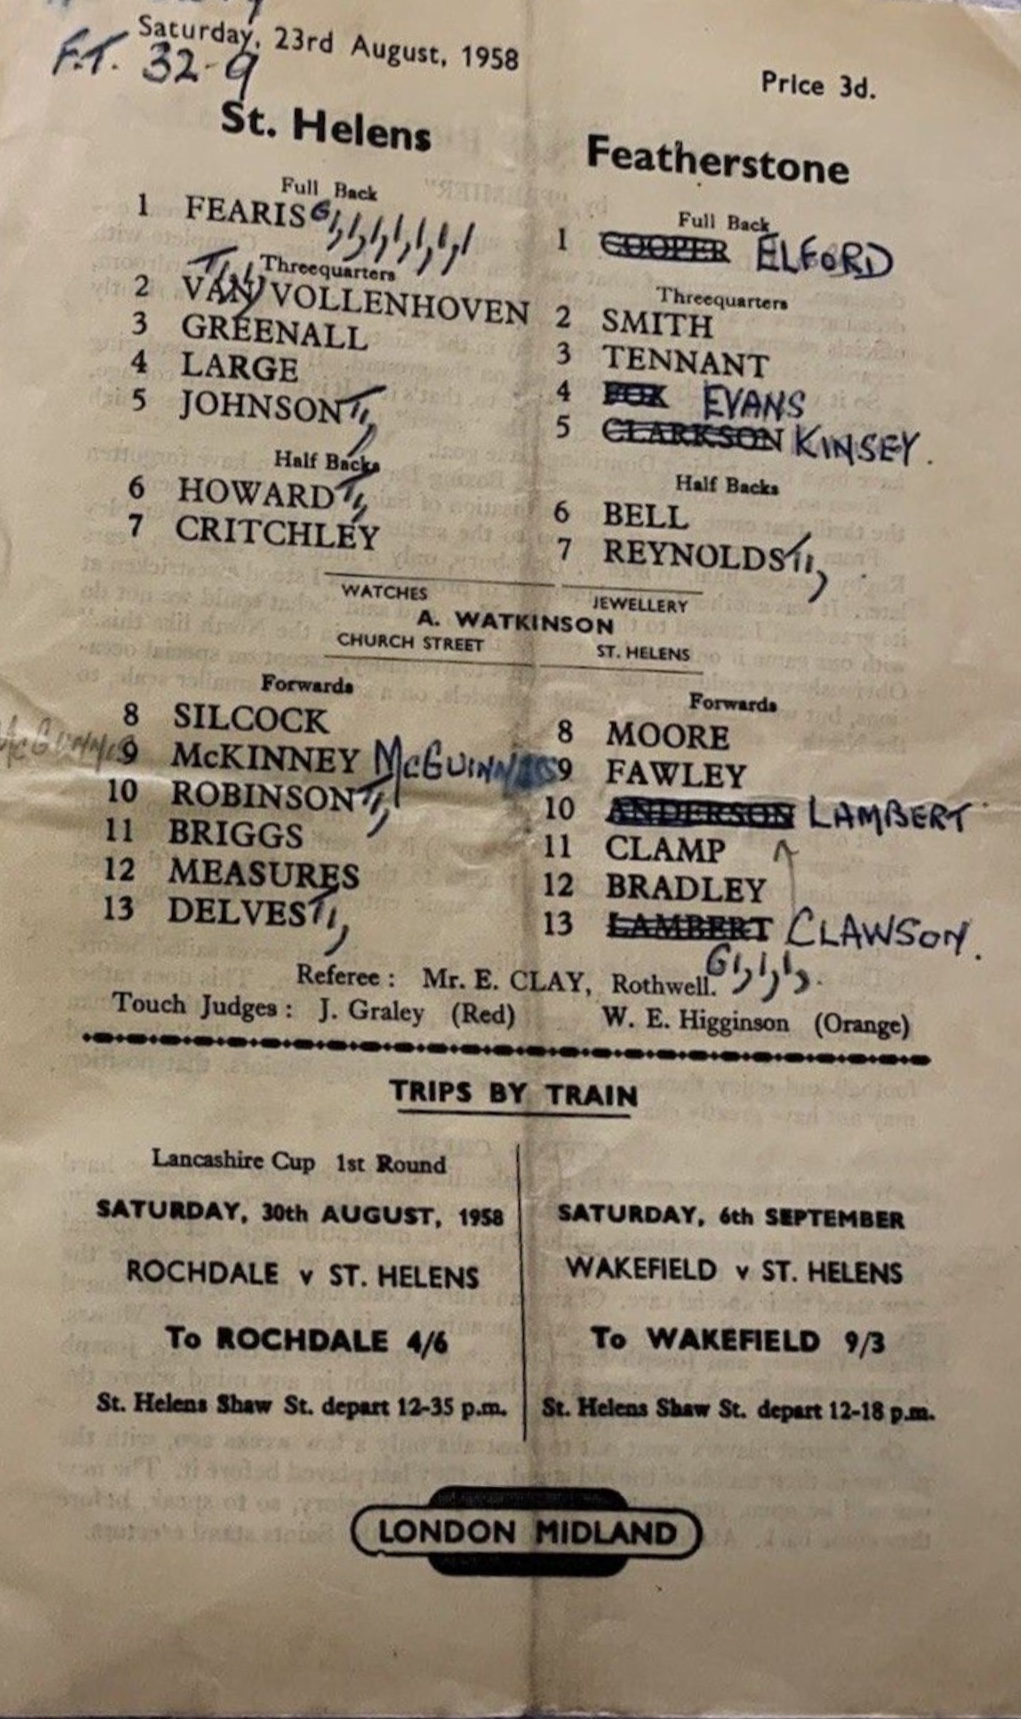 Saturday, 23rd August, 1958
F.T. 32-9
Price 3d.
St. Helens
Full Back
1 FEARIS G
Threequarters
2 VAN VOLLENHOVEN T
3 GREENALL
4 LARGE
5 JOHNSON T
Half Backs
6 HOWARD T
7 CRITCHLEY
Featherstone
Full Back
1 COOPER ELFORD
Threequarters
2 SMITH
3 TENNANT
4 FOX EVANS
5 CLARKSON KINSEY.
Half Backs
6 BELL
7 REYNOLDS T
WATCHES JEWELLERY
A. WATKINSON
CHURCH STREET ST. HELENS
Forwards
8 SILCOCK
McGUNNIS
9 McKINNEY McGUINNES
10 ROBINSON T
11 BRIGGS
12 MEASURES
13 DELVES T
Forwards
8 MOORE
9 FAWLEY
10 ANDERSON LAMBERT
11 CLAMP
12 BRADLEY
13 LAMBERT CLAWSON.
G
Referee : Mr. E. CLAY, Rothwell.
Touch Judges : J. Graley (Red) W. E. Higginson (Orange)
TRIPS BY TRAIN
Lancashire Cup 1st Round
SATURDAY, 30th AUGUST, 1958
ROCHDALE v ST. HELENS
To ROCHDALE 4/6
St. Helens Shaw St. depart 12-35 p.m.
SATURDAY, 6th SEPTEMBER
WAKEFIELD v ST. HELENS
To WAKEFIELD 9/3
St. Helens Shaw St. depart 12-18 p.m.
LONDON MIDLAND